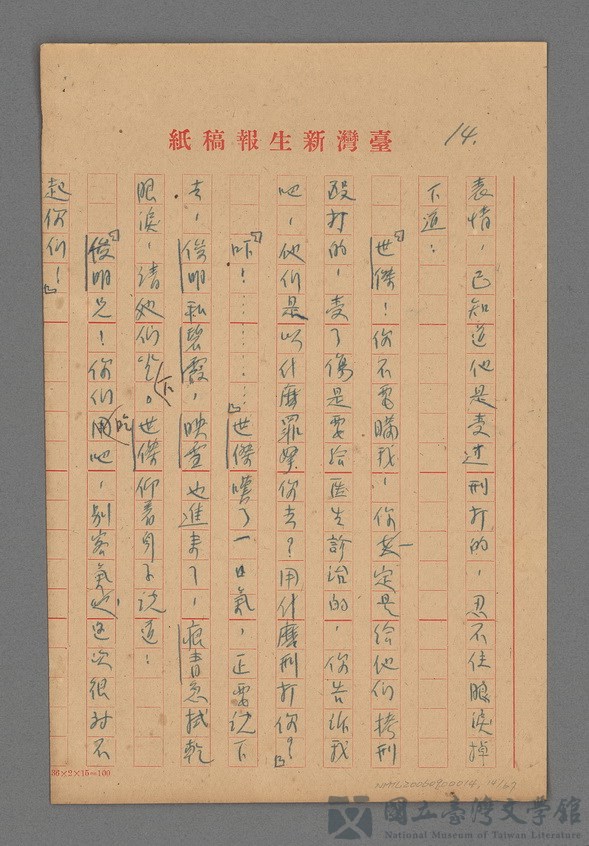 臺灣新生報稿紙
14.
表情，已知道他是受过刑打的，忍不住眼淚掉
下道：
「世傑！你不需瞞我，你一定是給他们拷刑
毆打的，受了傷是要给医生診治的，你告诉我
吧，他们是以什麼罪拏你去？用什麼刑打你？」
「吓！…………」世傑嘆了一口氣，正要说下
去，俊明和碧霞，映雪也進来了，痕青急拭乾
眼淚，请她们坐下。世傑仰着身子说道：
「俊明兄！你们吃吧，别客氣，这次很对不
起你们！」
36×2×15=100
NMTL20050900014, 14/67
國立臺灣文學館
National Museum of Taiwan Literature